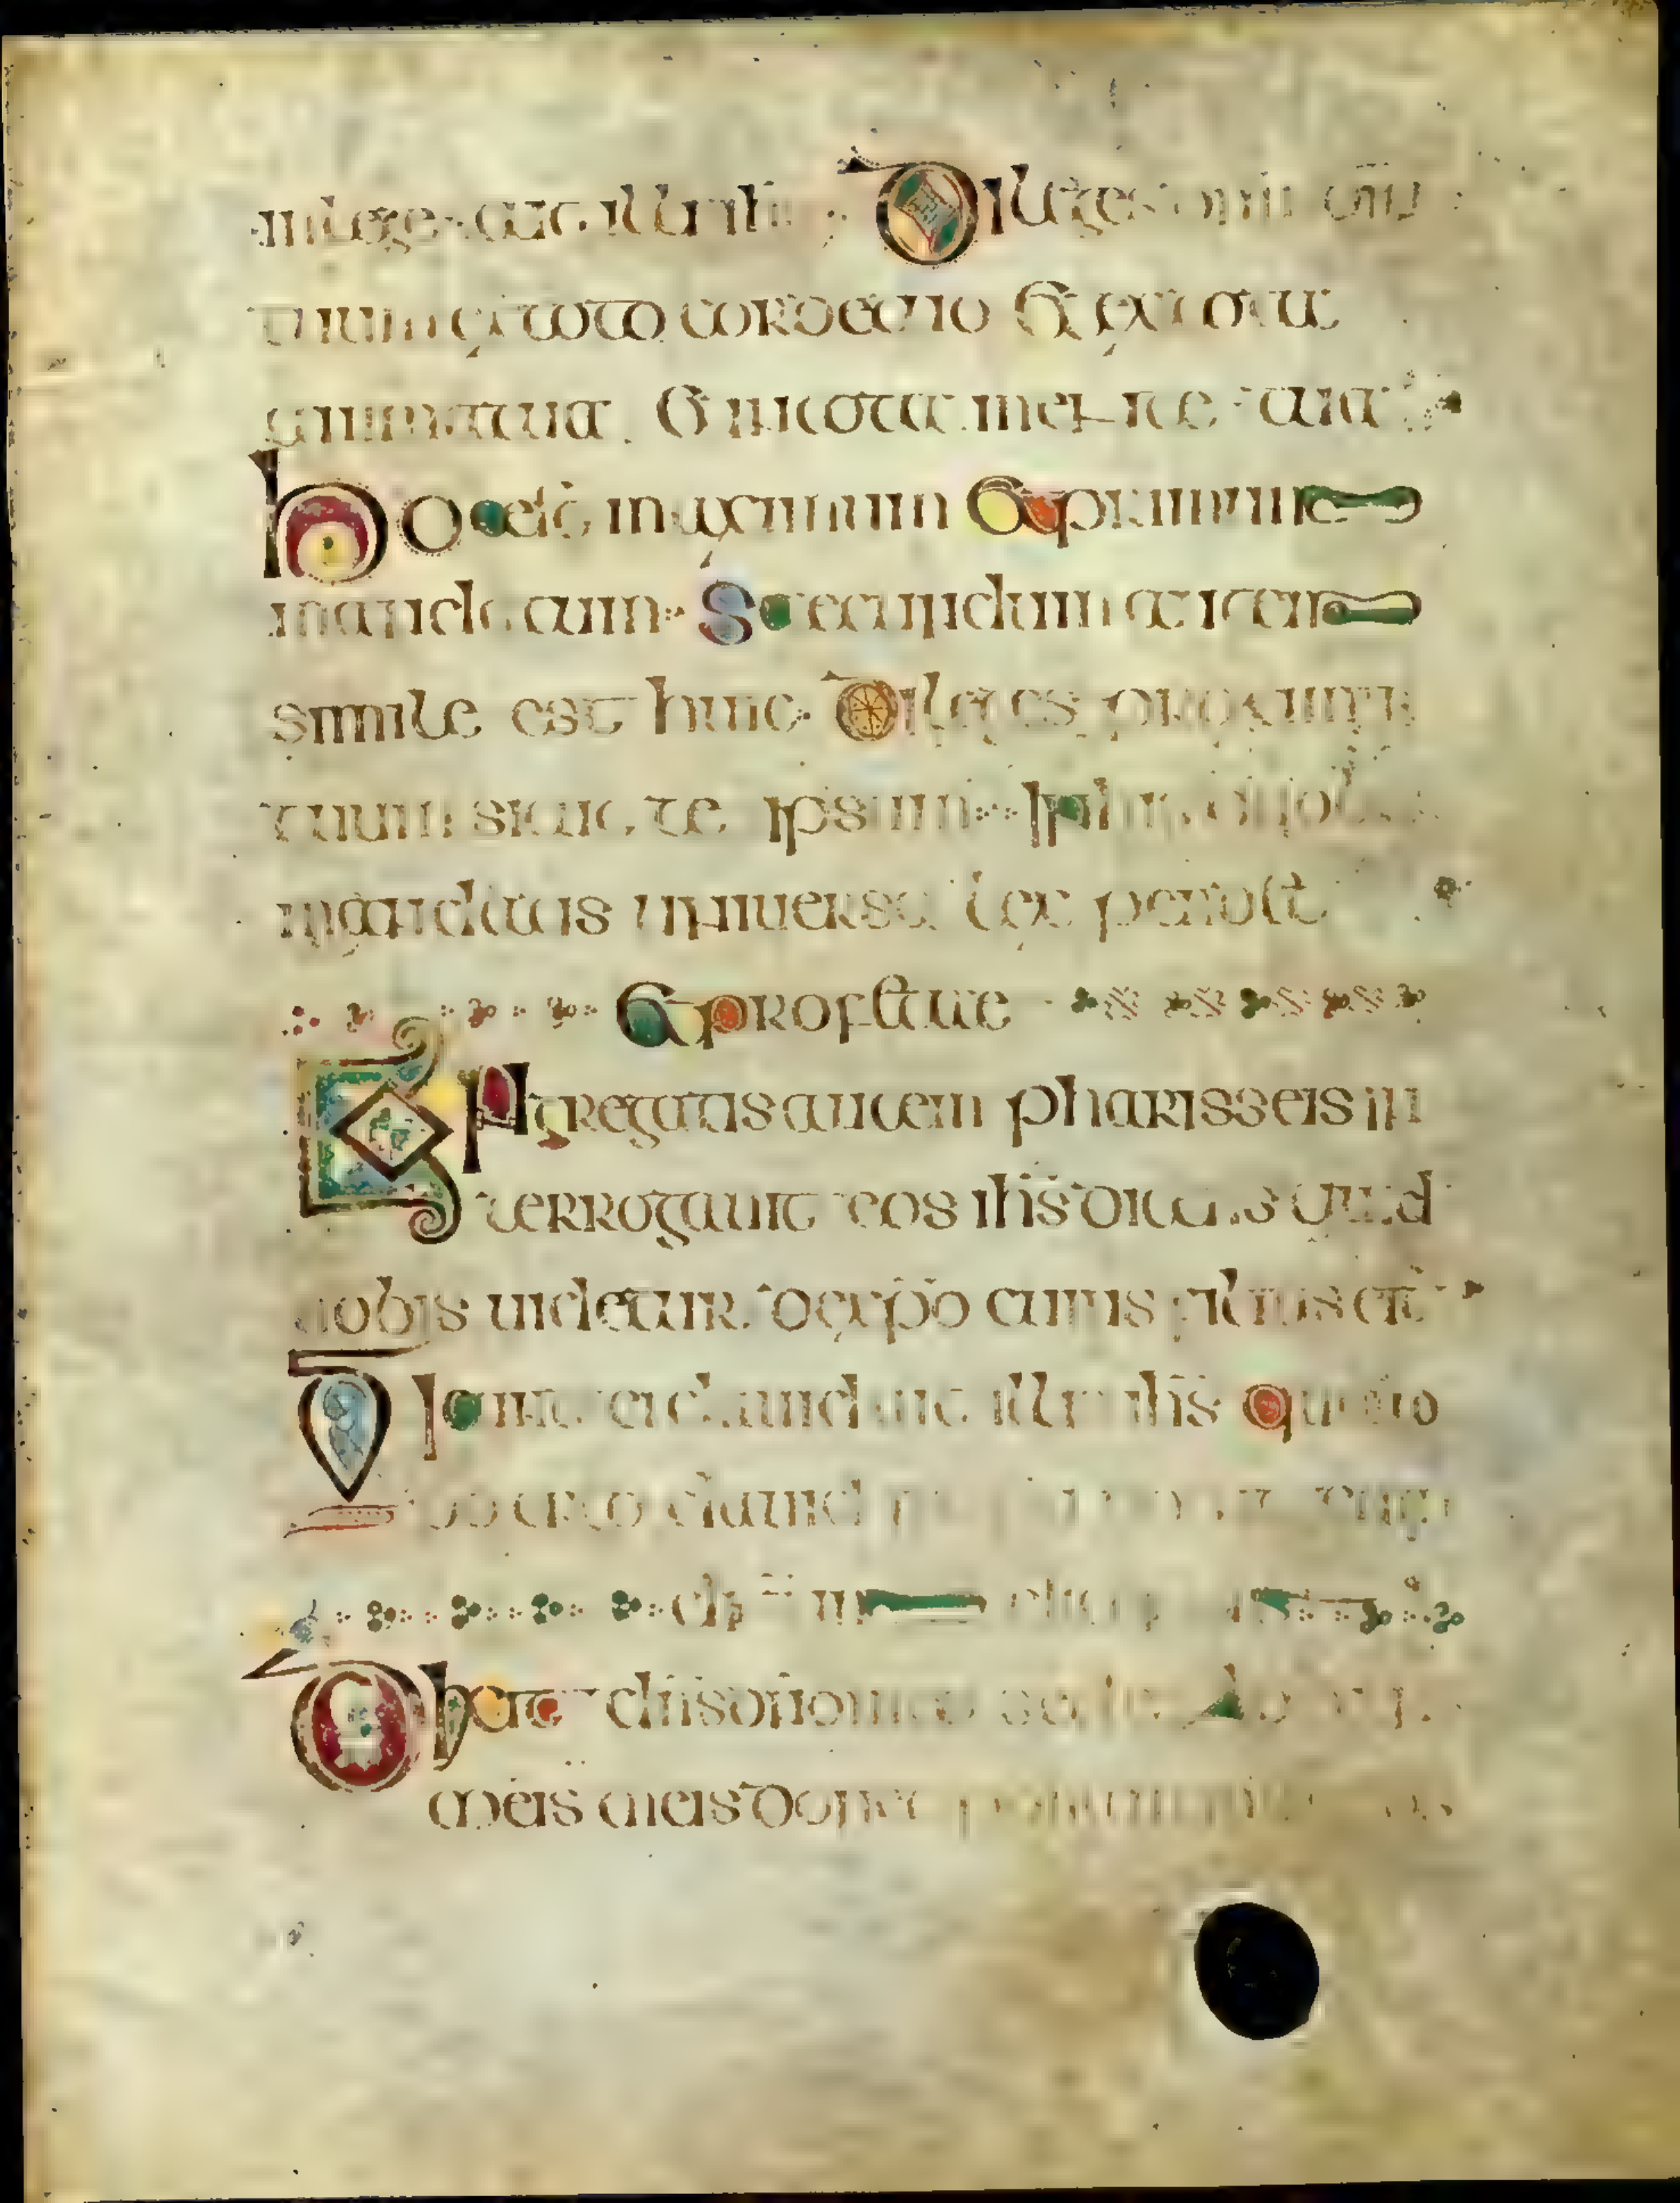 in lege ait illi ihs Diliges dnm dm
tuum ex toto corde tuo Et ex tota
anima tua Et in tota mente tua
Hoc est maximum Et primum
mandatum Secundum autem
simile est huic Diliges proximum
tuum sicut te ipsum In his duobus
mandatis universa lex pendet
Et profetae
Congregatis autem pharisseis in
terrogavit eos ihs dicens Quid
vobis videtur de xpo cuius filius est
Dicunt ei david ait illis ihs quomodo
ergo david
dnm
Dixit dns dno meo sede
meis donec